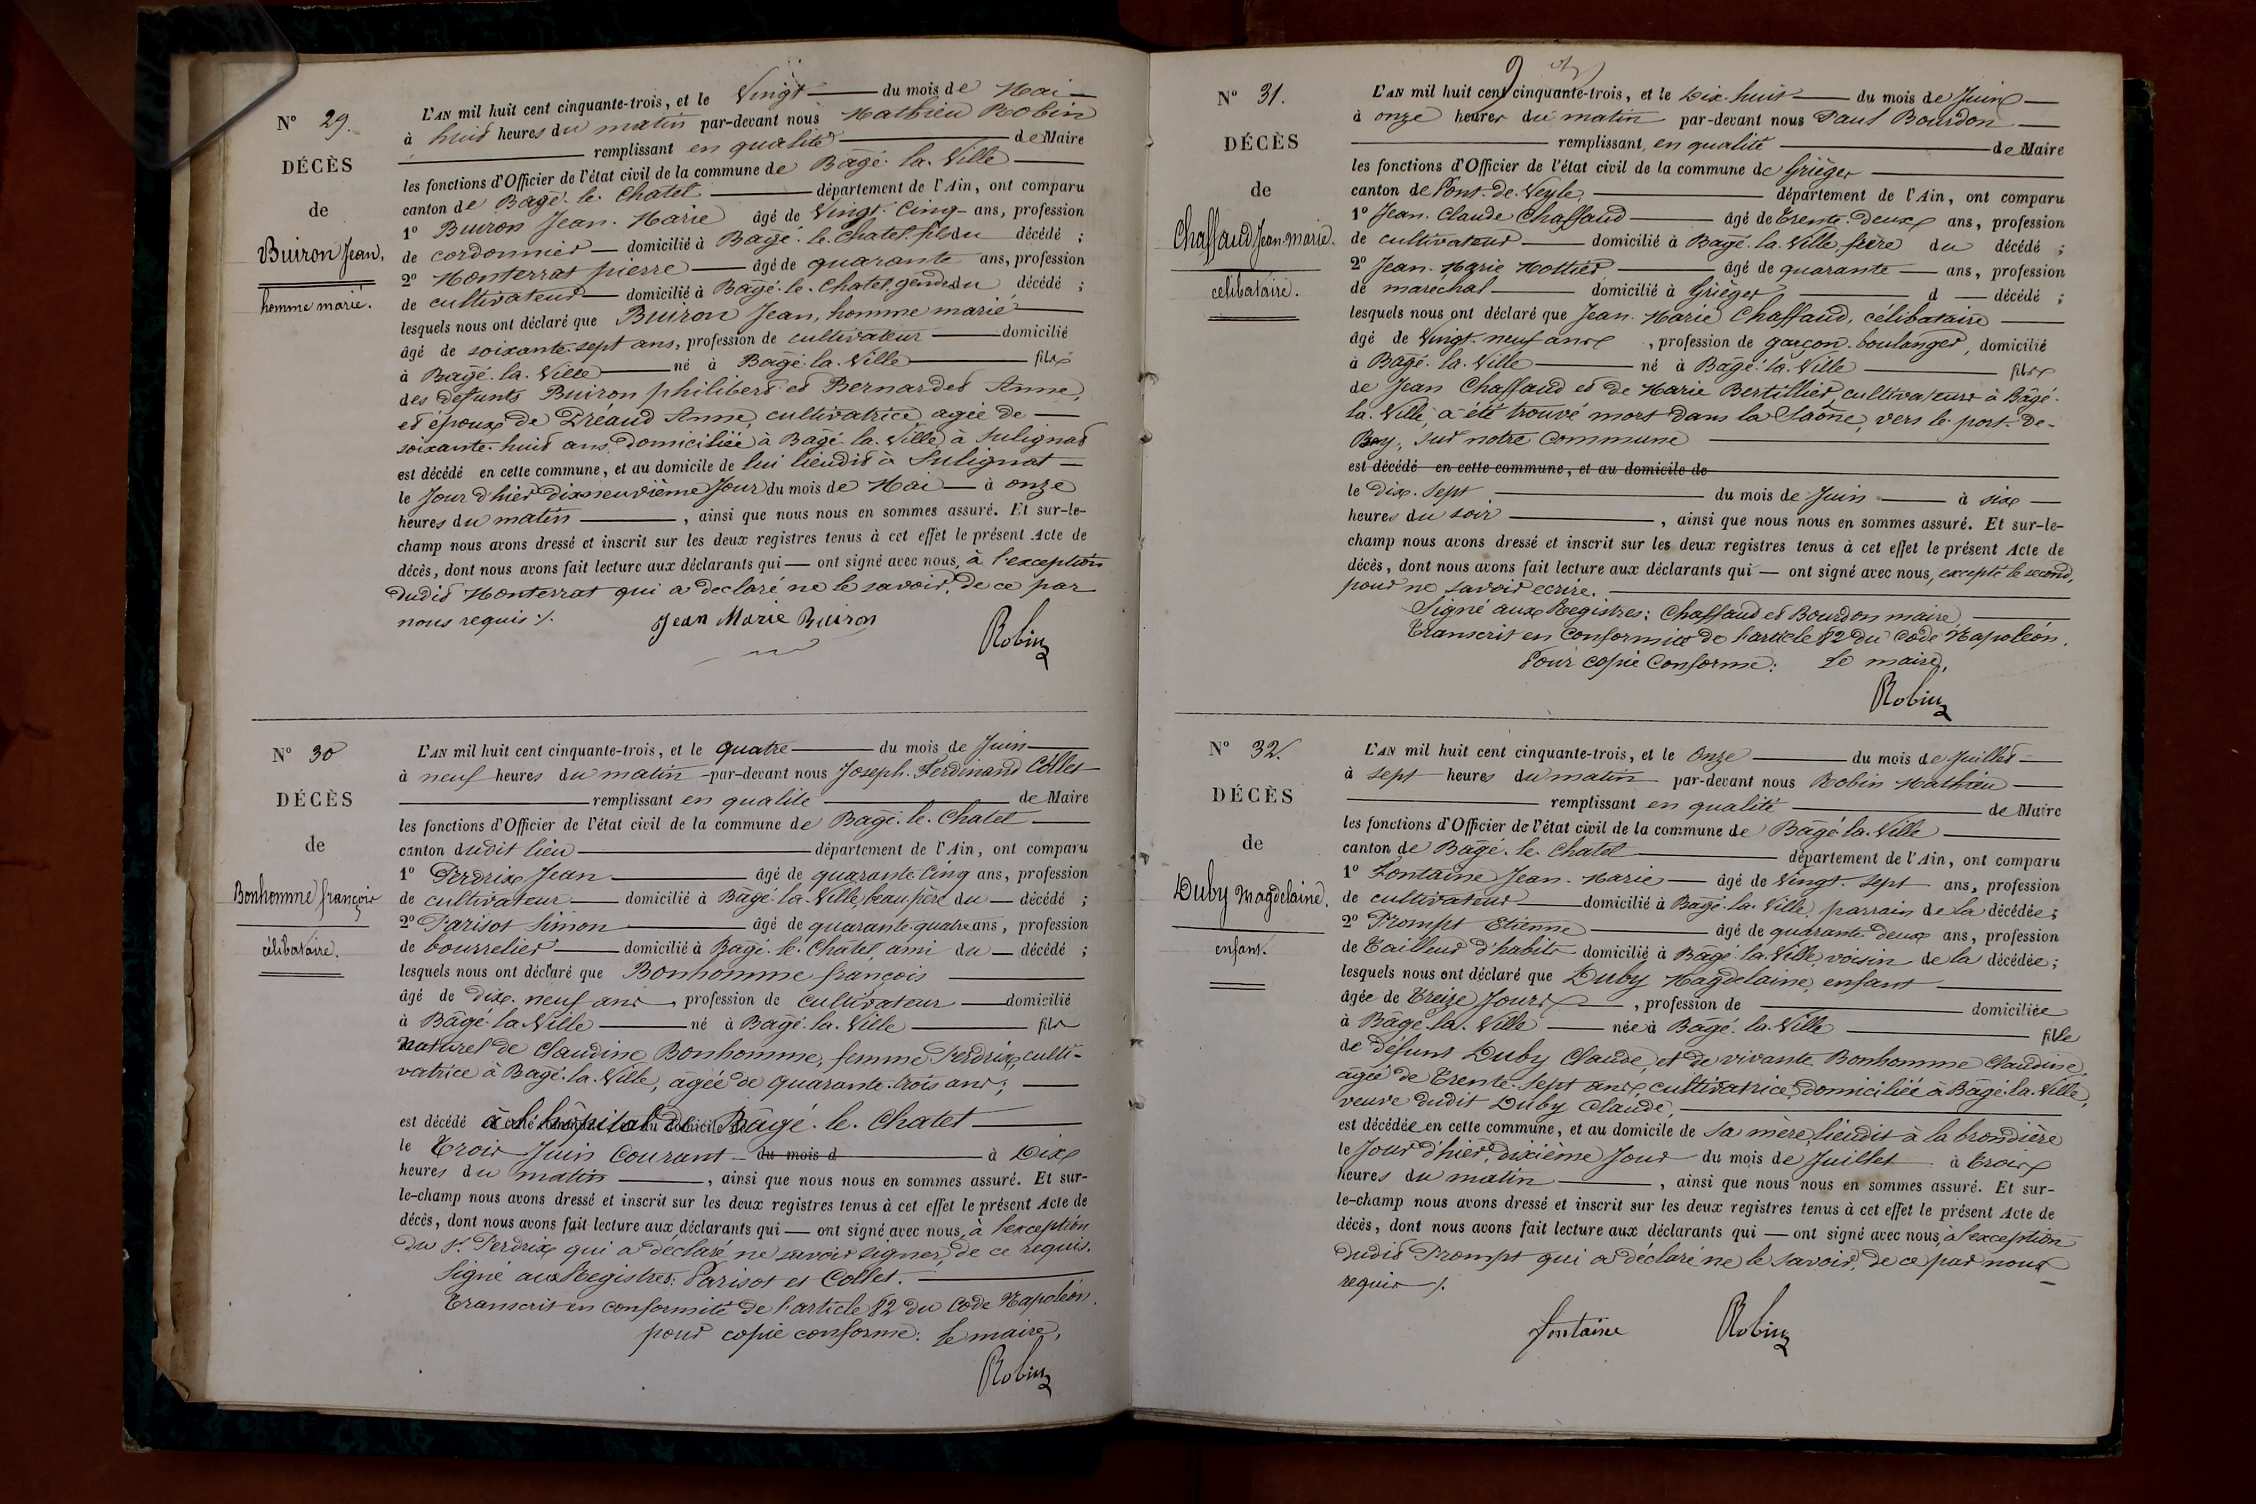 N° 29.
DÉCÈS
de
Buiron Jean,
homme marié.
L'AN mil huit cent cinquante-trois, et le Vingt du mois de Mai
à huit heures du matin par-devant nous Mathieu Robin
remplissant en qualité de Maire
les fonctions d'Officier de l'état civil de la commune de Bâgé-la-Ville
canton de Bâgé-le-Chatel département de l'Ain, ont comparu
1° Buiron Jean-Marie âgé de Vingt-Cinq ans, profession
de cordonnier domicilié à Bâgé-le-Chatel fils du décédé ;
2° Monterrat pierre âgé de quarante ans, profession
de cultivateur domicilié à Bâgé-le-Chatel, gendre du décédé ;
lesquels nous ont déclaré que Buiron Jean, homme marié
âgé de soixante-sept ans, profession de cultivateur domicilié
à Bâgé-la-Ville né à Bâgé-la-Ville fils
des défunts Buiron philibert et Bernardet Anne,
et époux de Préaud Anne, cultivatrice agée de
soixante-huit ans domiciliée à Bagé-la-Ville à Sulignat
est décédé en cette commune, et au domicile de lui lieudit à Sulignat
le Jour d'hier dixneuvième Jour du mois de Mai à onze
heures du matin, ainsi que nous nous en sommes assuré. Et sur-le-
champ nous avons dressé et inscrit sur les deux registres tenus à cet effet le présent Acte de
décès, dont nous avons fait lecture aux déclarants qui ont signé avec nous, à l'exception
dudit Monterrat qui a declaré ne le savoir, de ce par
nous requis ./.
Jean Marie Buiron
Robin
N° 30
DÉCÈS
de
Bonhomme françois
célibataire.
L'AN mil huit cent cinquante-trois, et le quatre du mois de Juin
à neuf heures du matin par-devant nous Joseph-Ferdinand Collet
remplissant en qualité de Maire
les fonctions d'Officier de l'état civil de la commune de Bagé-le-Chatel
canton dudit lieu département de l'Ain, ont comparu
1° Perdrix Jean âgé de quarante-Cinq ans, profession
de cultivateur domicilié à Bâgé-la-Ville, beau père du décédé ;
2° Parisot Simon âgé de quarante quatre ans, profession
de bourrelier domicilié à Bagé-le-Chatel, ami du décédé ;
lesquels nous ont déclaré que Bonhomme françois
âgé de dix-neuf ans, profession de cultivateur domicilié
à Bâgé-la-Ville né à Bagé-la-Ville fils
naturel de Claudine Bonhomme, femme Perdrix, culti-
vatrice à Bagé-la-Ville, agée de quarante-trois ans ;
est décédé à l'hôpital de Bâgé-le-Chatel
le Trois Juin Courant du mois d à Dix
heures du matin, ainsi que nous nous en sommes assuré. Et sur-
le-champ nous avons dressé et inscrit sur les deux registres tenus à cet effet le présent Acte de
décès, dont nous avons fait lecture aux déclarants qui ont signé avec nous, à l'exception
du S. Perdrix qui a declaré ne savoir signer, de ce requis.
Signé aux Registres: Parisot et Collet.
Transcrit en conformité de l'article 82 du Code Napoléon.
pour copie conforme: Le maire,
Robin
N° 31.
DÉCÈS
de
Chaffaud Jean-Marie.
celibataire.
L'AN mil huit cent cinquante-trois, et le Dix-huit du mois de Juin
à onze heures du matin par-devant nous Paul Bourdon
remplissant en qualité de Maire
les fonctions d'Officier de l'état civil de la commune de Grièges
canton de Pont-de-Veyle, département de l'Ain, ont comparu
1° Jean-Claude Chaffaud âgé de Trente-deux ans, profession
de cultivateur domicilié à Bagé-la-Ville frère du décédé ;
2° Jean-Marie Mottier âgé de quarante ans, profession
de maréchal domicilié à Grièges d décédé ;
lesquels nous ont déclaré que Jean-Marie Chaffaud, célibataire
âgé de Vingt-neuf ans, profession de garçon-boulanger, domicilié
à Bagé-la-Ville né à Bagé-la-Ville fils
de Jean Chaffaud et de Marie Bertillier, cultivateurs à Bâgé-
la-Ville, a été trouvé mort dans la Saône, vers le port-De-
Bey, sur notre Commune
est décédé en cette commune, et au domicile de
le Dix-sept du mois de Juin à six
heures du soir, ainsi que nous nous en sommes assuré. Et sur-le-
champ nous avons dressé et inscrit sur les deux registres tenus à cet effet le présent Acte de
décès, dont nous avons fait lecture aux déclarants qui ont signé avec nous, excepté le second,
pour ne savoir ecrire.
Signé aux Registres: Chaffaud et Bourdon maire
Transcrit en Conformité de l'article 82 du Code Napoléon.
Pour copie Conforme: Le maire,
Robin
N° 32.
DÉCÈS
de
Duby Magdelaine.
enfant.
L'AN mil huit cent cinquante-trois, et le Onze du mois de Juillet
à sept heures du matin par-devant nous Robin Mathieu
remplissant en qualité de Maire
les fonctions d'Officier de l'état civil de la commune de Bâgé-la-Ville
canton de Bâgé-le-Chatel département de l'Ain, ont comparu
1° Fontaine Jean-Marie âgé de Vingt-sept ans, profession
de cultivateur domicilié à Bagé-la-Ville, parrain de la décédée ;
2° Prompt Etienne âgé de quarante-deux ans, profession
de Tailleur d'habits domicilié à Bâgé-la-Ville, voisin de la décédée ;
lesquels nous ont déclaré que Duby Magdelaine, enfant
âgée de Treize Jours, profession de domiciliée
à Bâgé-la-Ville née à Bagé-la-Ville fille
de défunt Duby Claude, et de vivante Bonhomme Claudine,
agée de Trente-sept ans, cultivatrice, domiciliée à Bâgé-la-Ville,
veuve dudit Duby Claude,
est décédée en cette commune, et au domicile de sa mère, lieudit à la brondière
le Jour d'hier, dixième Jour du mois de Juillet à Trois
heures du matin, ainsi que nous nous en sommes assuré. Et sur-
le-champ nous avons dressé et inscrit sur les deux registres tenus à cet effet le présent Acte de
décès, dont nous avons fait lecture aux déclarants qui ont signé avec nous, à l'exception
dudit Prompt qui a déclaré ne le savoir, de ce par nous
requis ./.
fontaine
Robin